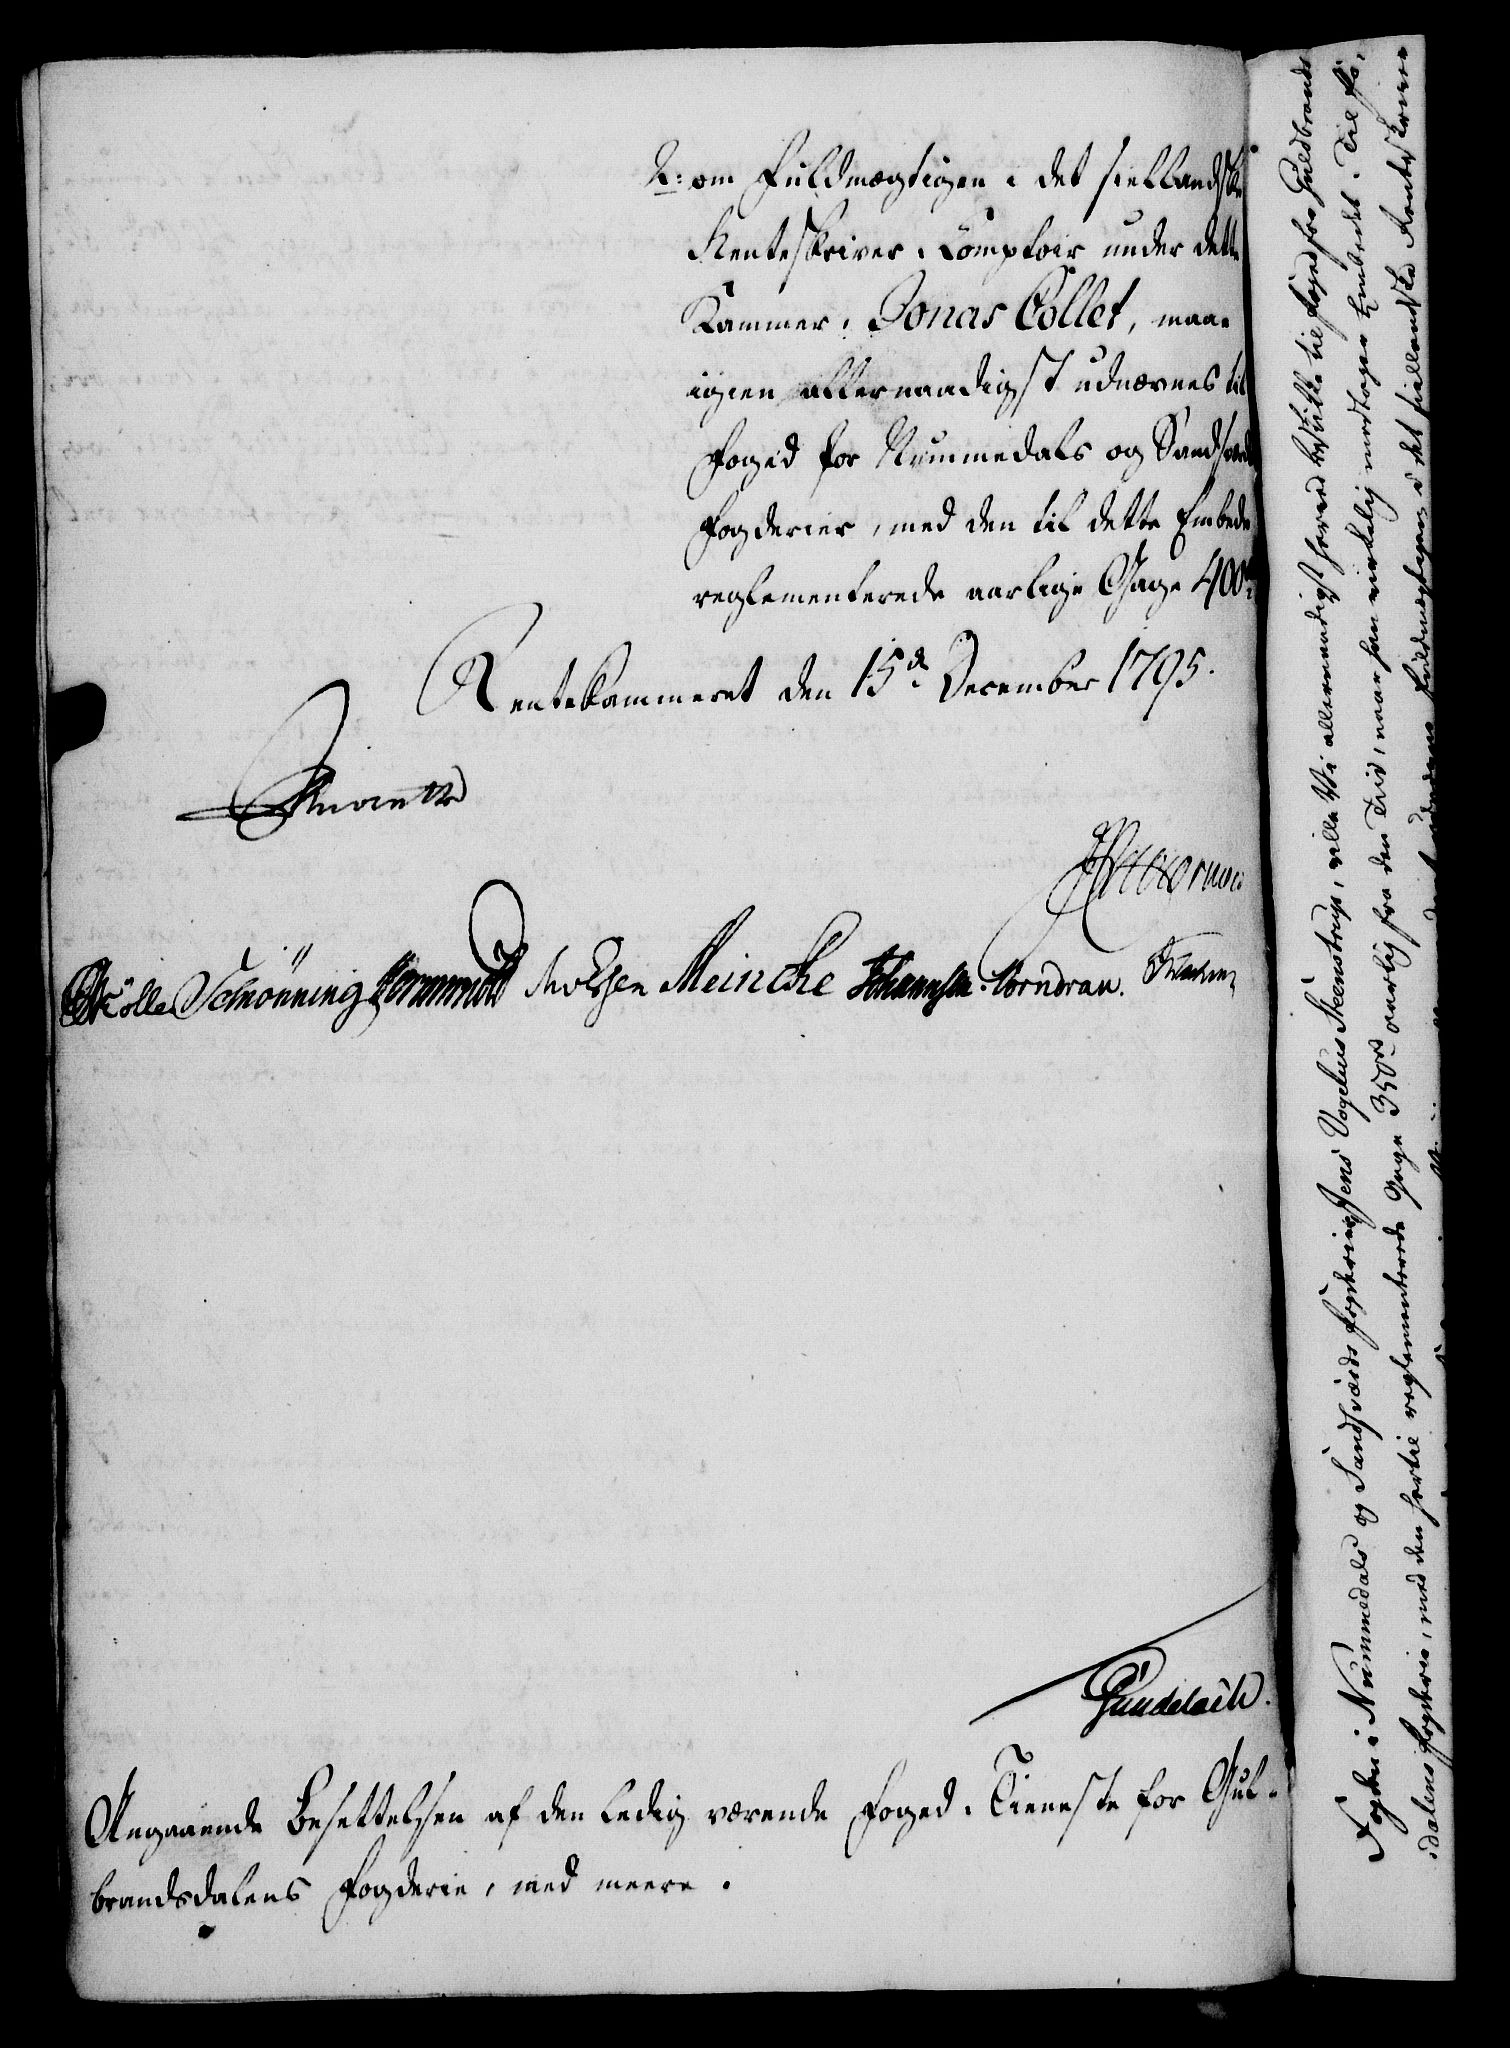 2: om Fuldmægtigen i det siellandske
Renteskriver-Comptoir under dette
Kammer, Jonas Collet, maae
igien allernaadigst udnævnes til
Foged for Nummedals og Sandsværds
Fogderier, med den til dette Embede
reglementerede aarlige Gage 400 rd.
Rentekammeret den 15de December 1795.
Schönning Meincke Johannsen. Vorndran.
Gundelach.
Angaaende Besættelsen af den ledig værende Foged-Tieneste for Gul-
brandsdalens Fogderie, med meere.
Fogden i Nummedals og Sandsværds Fogderier, Jens Vogelius Steenstrup, ville Vi allernaadigst herved beskikke til Foged for Guldbrands
dalens Fogderie, med den hertil reglementerede Gage 350 rd. aarlig fra den Tid, naar han virkelig modtager Embedet. Til Fo-
Fuldmægtigen i det siellandske Renteskriver